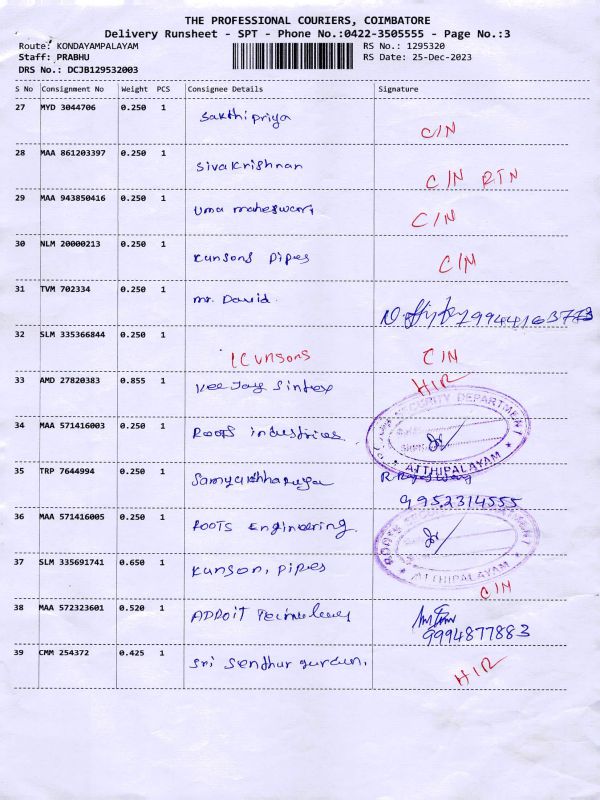 THE PROFESSIONAL COURIERS, COIMBATORE
Delivery Runsheet - SPT - Phone No.:0422-3505555 - Page No.:3
Route: KONDAYAMPALAYAM RS No.: 1295320
Staff: PRABHU RS Date: 25-Dec-2023
DRS No.: DCJB129532003
S No Consignment No Weight PCS Consignee Details Signature
27 MYD 3044706 0.250 1 Sakthipriya C/N
28 MAA 861203397 0.250 1 Sivakrishnan C/N RTN
29 MAA 943850416 0.250 1 Uma maheswari C/N
30 NLM 20000213 0.250 1 Kunsons Pipes C/N
31 TVM 702334 0.250 1 Mr. David
32 SLM 335366844 0.250 1 Kunsons C/N
33 AMD 27820383 0.855 1 Vee Jay Sintex H/R
34 MAA 571416003 0.250 1 Roots industries
SECURITY DEPARTMENT
ATTHIPALAYAM
35 TRP 7644994 0.250 1
9952314555
36 MAA 571416005 0.250 1 ROOTS Engineering
ROOTS DEPARTMENT
ATTHIPALAYAM
37 SLM 335691741 0.650 1 Kunson, Pipes C/N
38 MAA 572323601 0.520 1 ADROIT
9994877883
39 CMM 254372 0.425 1 Sri Sendhur H/R